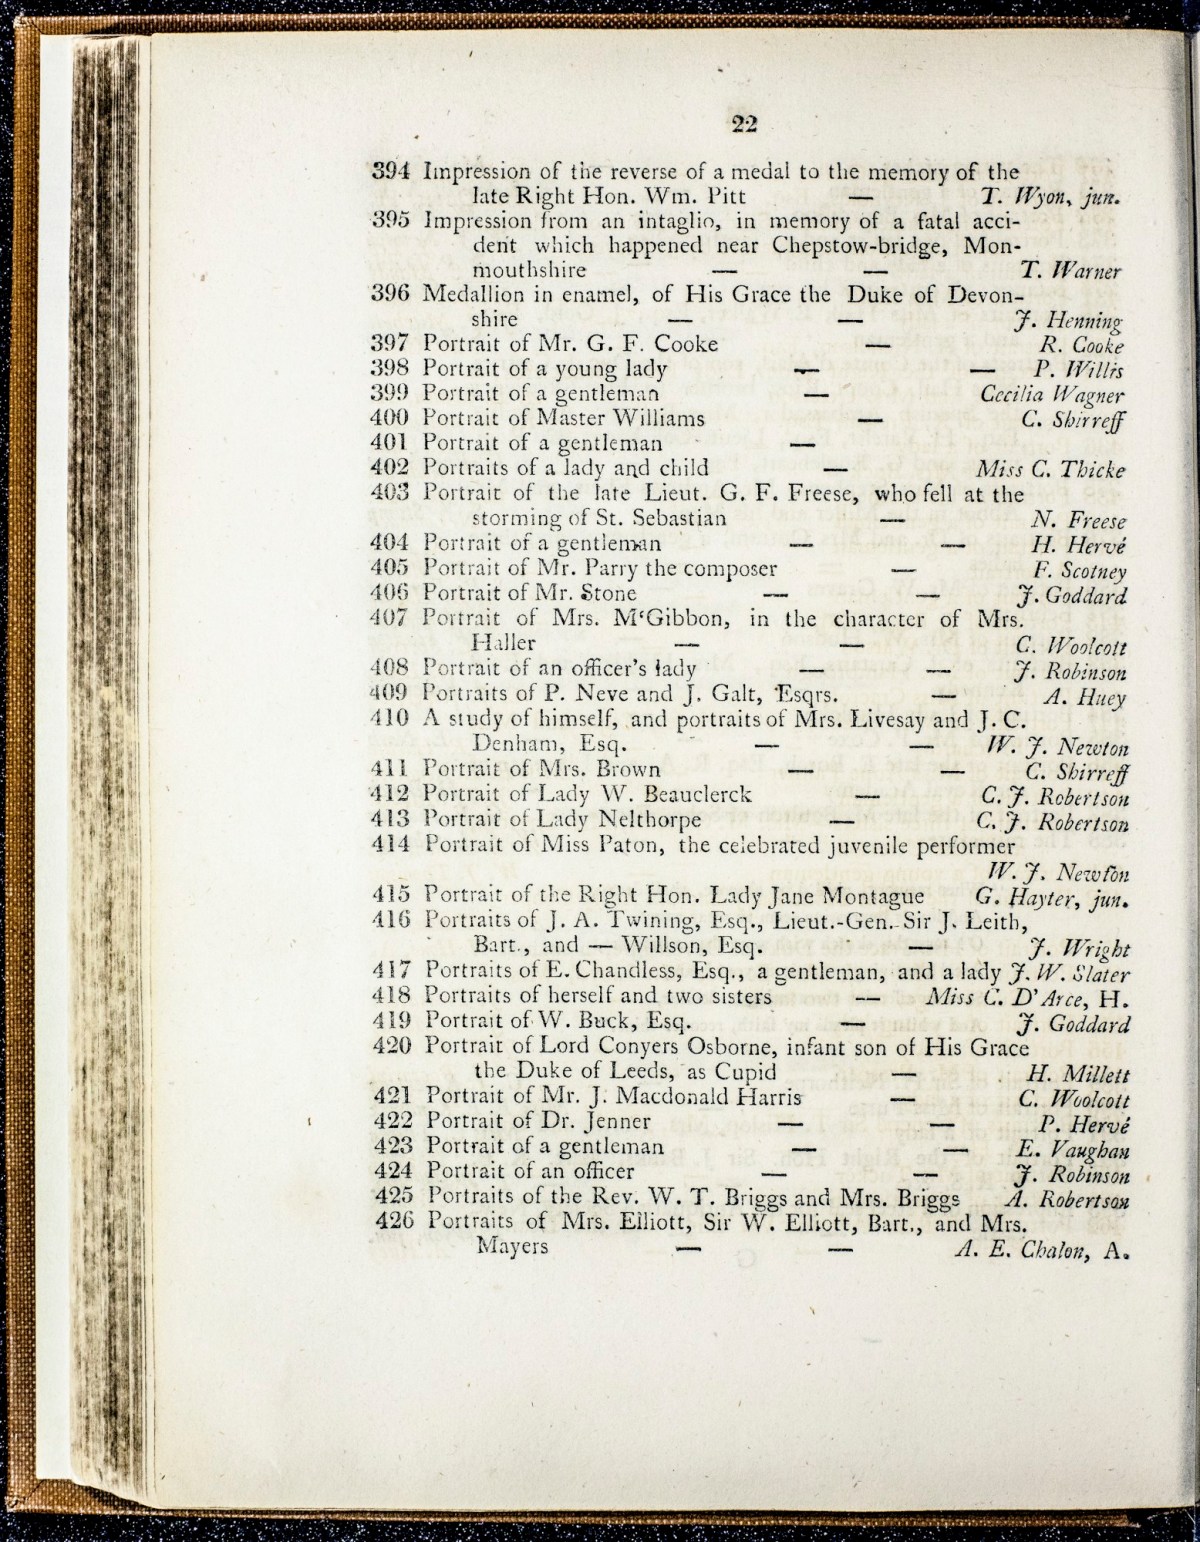 22
394 Impression of the reverse of a medal to the memory of the
late Right Hon. Wm. Pitt — T. Wyon, jun.
395 Impression from an intaglio, in memory of a fatal acci-
dent which happened near Chepstow-bridge, Mon-
mouthshire — — T. Warner
396 Medallion in enamel, of His Grace the Duke of Devon-
shire — — J. Henning
397 Portrait of Mr. G. F. Cooke — R. Cooke
398 Portrait of a young lady — — P. Willis
399 Portrait of a gentleman — Cecilia Wagner
400 Portrait of Master Williams — C. Shirreff
401 Portrait of a gentleman —
402 Portraits of a lady and child — Miss C. Thicke
403 Portrait of the late Lieut. G. F. Freese, who fell at the
storming of St. Sebastian — N. Freese
404 Portrait of a gentleman — — H. Hervé
405 Portrait of Mr. Parry the composer — F. Scotney
406 Portrait of Mr. Stone — — J. Goddard
407 Portrait of Mrs. McGibbon, in the character of Mrs.
Haller — — C. Woolcott
408 Portrait of an officer's lady — — J. Robinson
409 Portraits of P. Neve and J. Galt, Esqrs. — A. Huey
410 A study of himself, and portraits of Mrs. Livesay and J. C.
Denham, Esq. — — W. J. Newton
411 Portrait of Mrs. Brown — — C. Shirreff
412 Portrait of Lady W. Beauclerck — C. J. Robertson
413 Portrait of Lady Nelthorpe — C. J. Robertson
414 Portrait of Miss Paton, the celebrated juvenile performer
W. J. Newton
415 Portrait of the Right Hon. Lady Jane Montague G. Hayter, jun.
416 Portraits of J. A. Twining, Esq., Lieut.-Gen. Sir J. Leith,
Bart., and — Willson, Esq. — J. Wright
417 Portraits of E. Chandless, Esq., a gentleman, and a lady J. W. Slater
418 Portraits of herself and two sisters — Miss C. D'Arce, H.
419 Portrait of W. Buck, Esq. — J. Goddard
420 Portrait of Lord Conyers Osborne, infant son of His Grace
the Duke of Leeds, as Cupid — H. Millett
421 Portrait of Mr. J. Macdonald Harris — C. Woolcott
422 Portrait of Dr. Jenner — — P. Hervé
423 Portrait of a gentleman — — E. Vaughan
424 Portrait of an officer — — J. Robinson
425 Portraits of the Rev. W. T. Briggs and Mrs. Briggs A. Robertson
426 Portraits of Mrs. Elliott, Sir W. Elliott, Bart., and Mrs.
Mayers — — A. E. Chalon, A.